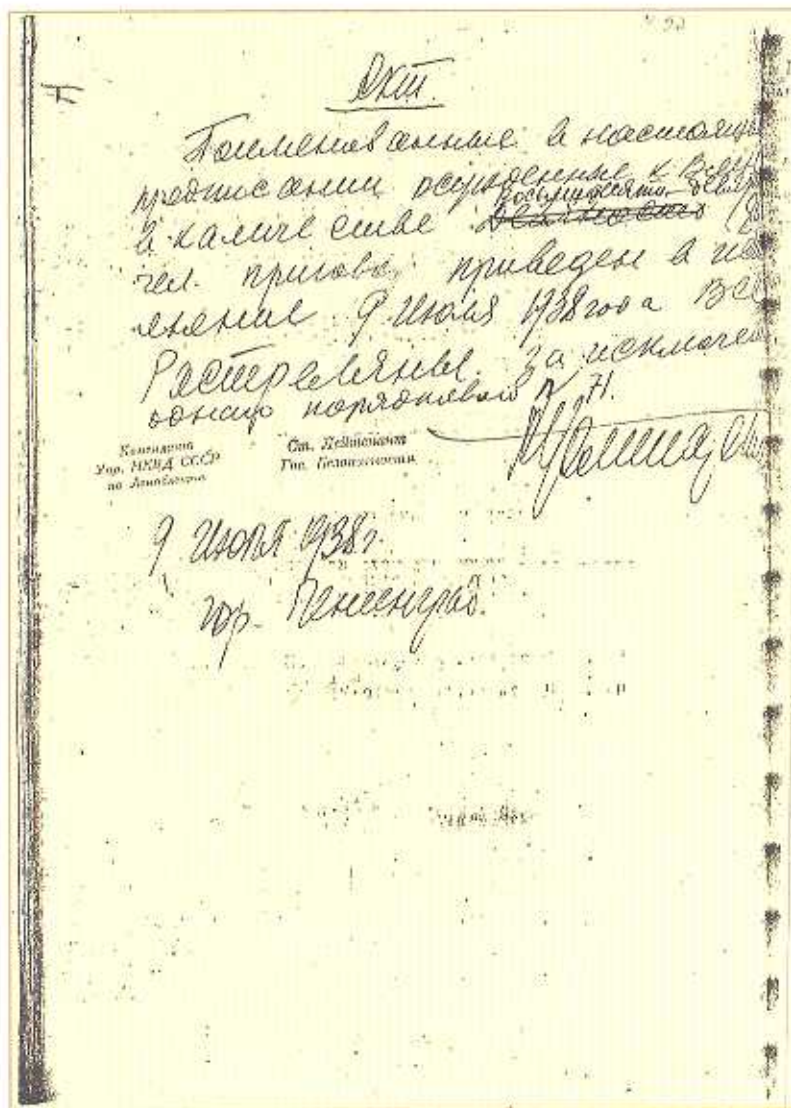 Акт.
Поименованные в настояще
предписании осужденные к В.М.Н.
восьмидесяти девяти
в каличестве девяносто
чел. пригово. приведен в ис
лнение 9 июля 1938 года Все
Растреляны за исключен
однаго порядковой N 71.
Комендант
Упр. НКВД СССР
по Ленобласти
Ст. Лейтенант
Гос. Безопасности
9 июля 1938 г.
гор. Ленинград.